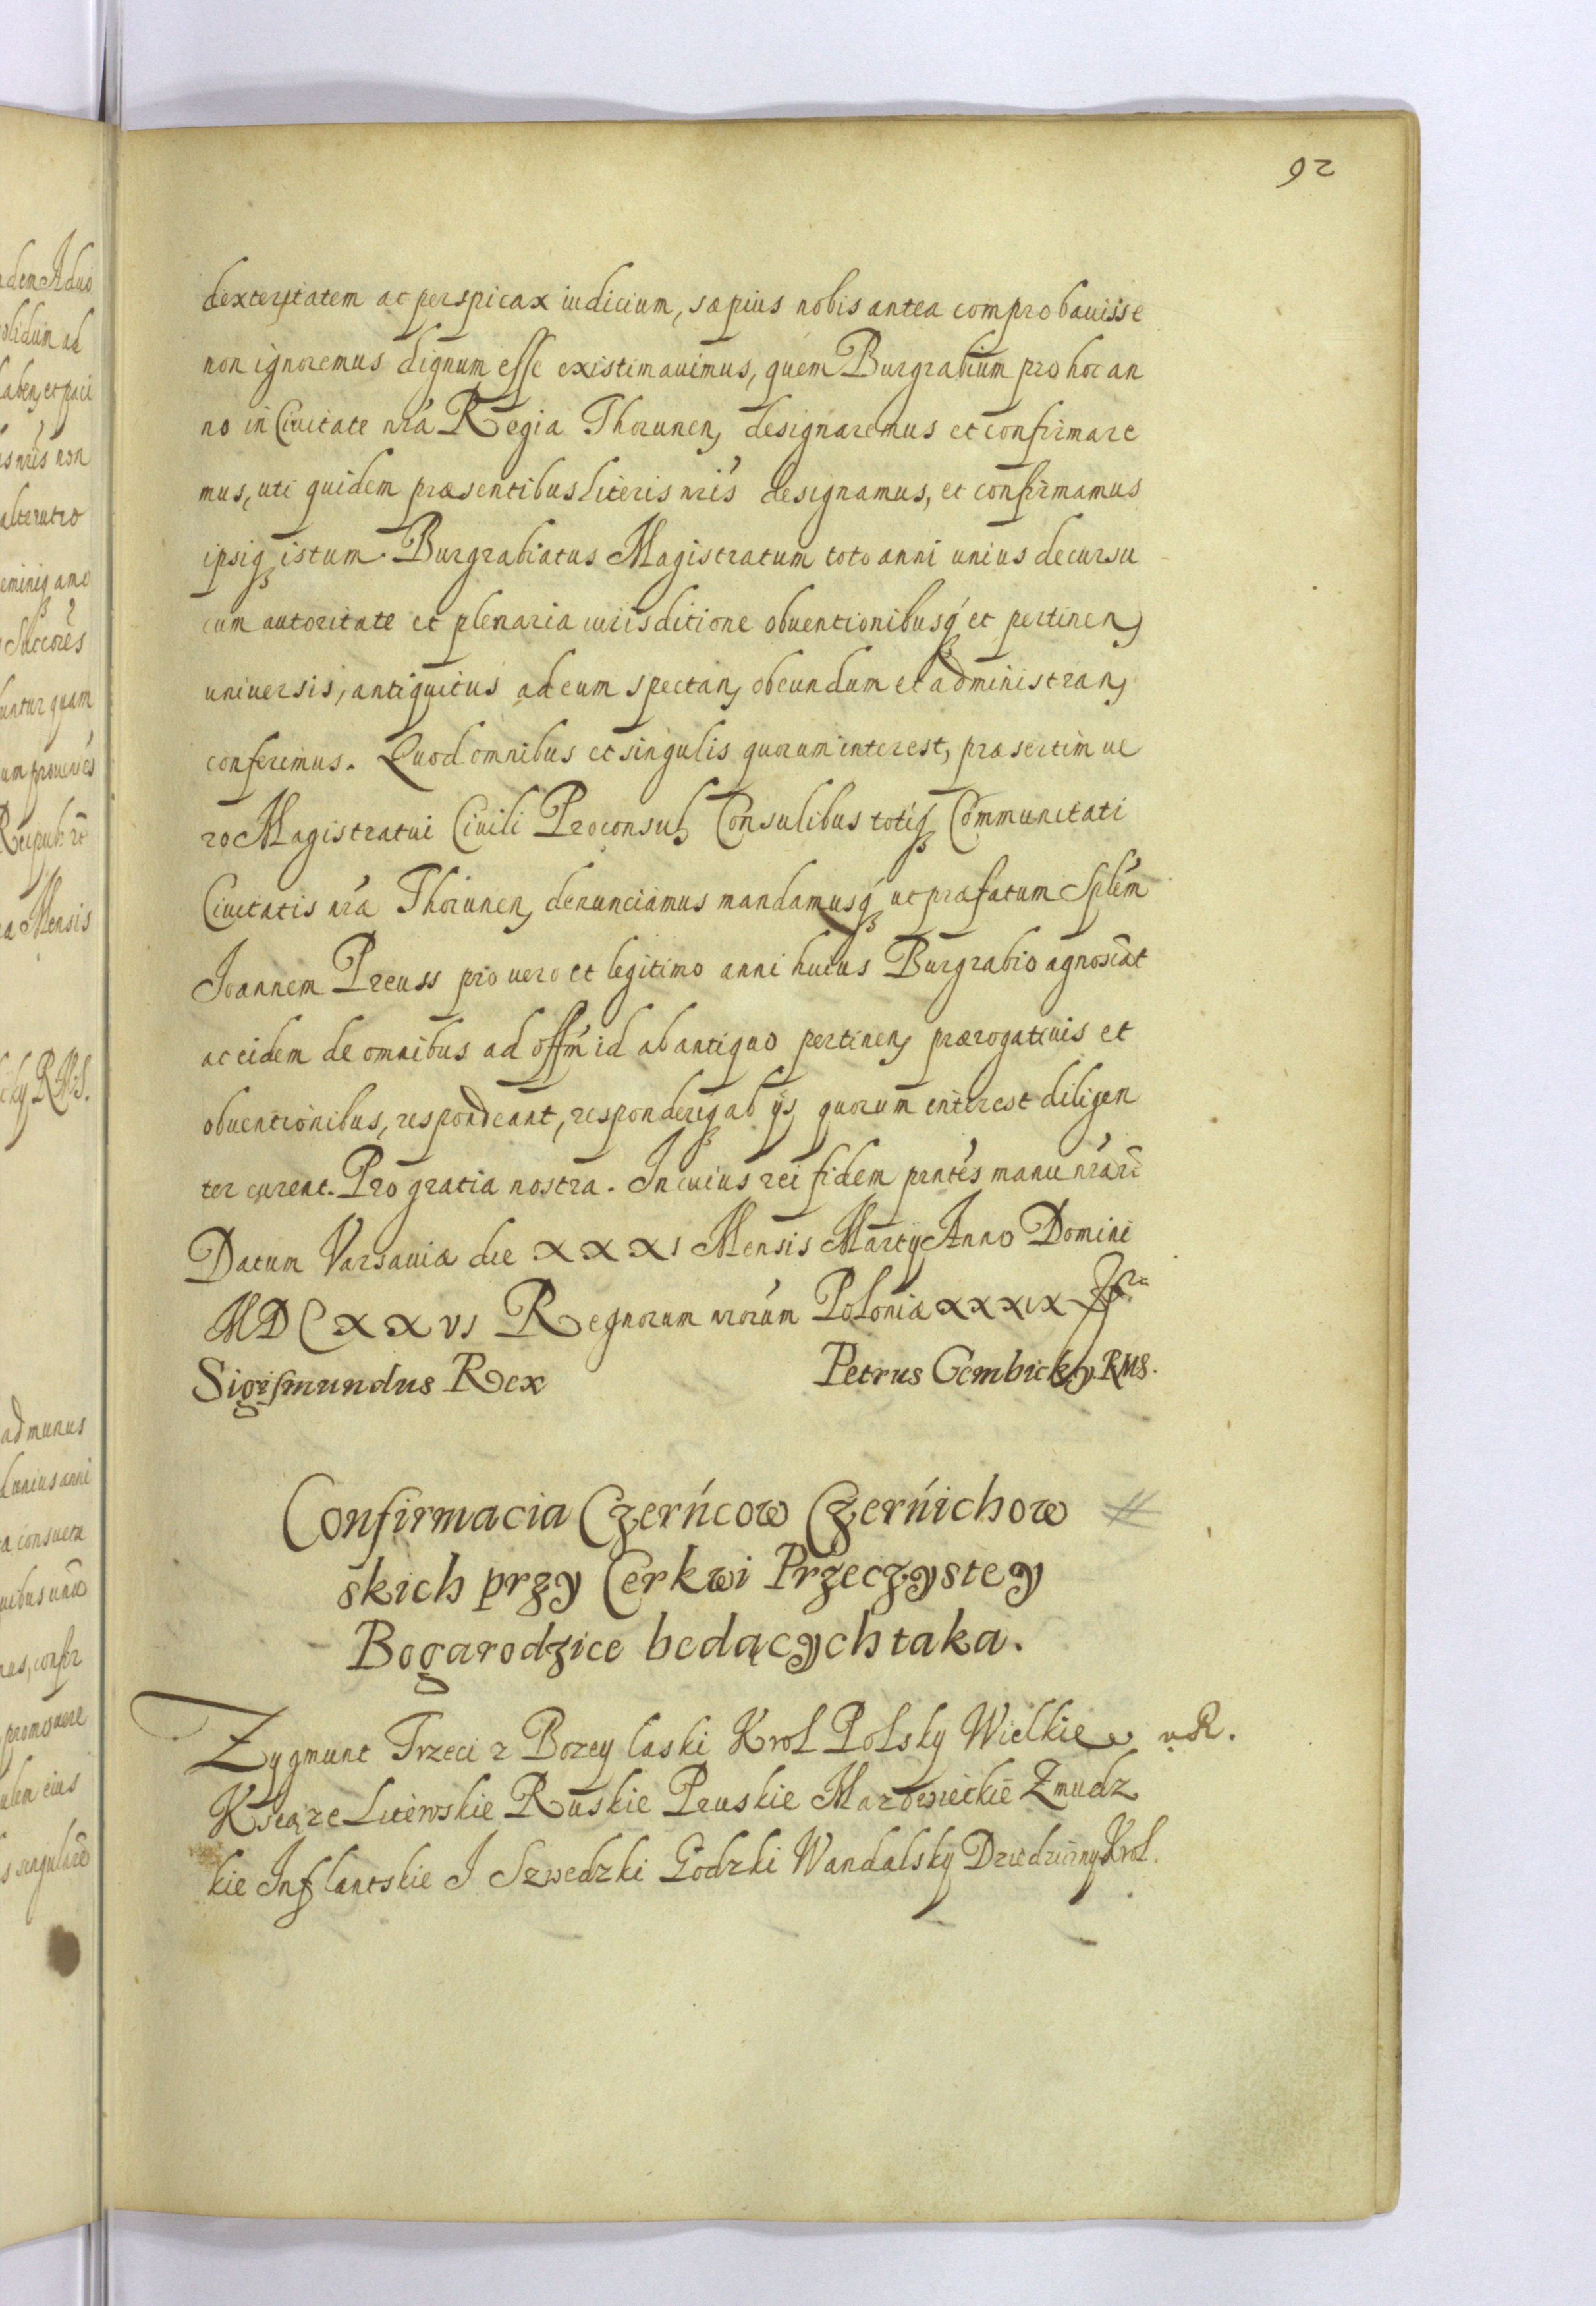 92
dexteritatem ac perspicax iudicium, sæpius nobis antea comprobauisse
non ignoremus dignum esse existimauimus, quem Burgrabium pro hoc an
no in Ciuitate nrá Regia Thorunen, designaremus et confirmare
mus, uti quidem præsentibus literis nris designamus, et confirmamus
ipsiq istum Burgrabiatus Magistratum toto anni unius decursu
cum autoritate et plenaria iurisditione obuentionibusq et pertinen,
universis, antiquitus ad eum spectan, obeundum et administran,
conferimus. Quod omnibus et singulis quorum interest, præsertim ue
ro Magistratui Ciuili Proconsul, Consulibus totiq Communitati
Ciuitatis nrá Thorunen, denunciamus mandamusq ut præfatum Splém
Joannem Preuss pro uero et legitimo anni huius Burgrabio agnoscāt
ac eidem de omnibus ad offm id ab antiquo pertinen, prærogatiuis et
obuentionibus, respondeant, responderiq ab ijs quorum interest diligen
ter curent. Pro gratia nostra. In cuius rei fidem prntes manu nrá rc
Datum Varsauiæ die XXXI Mensis Martij Anno Domini
MDCXXVI Regnorum nrorum Poloniæ XXXIX
Sigismundus Rex Petrus Gembicky RMS.
Confirmacia Czerńcow Czerńichow
skich przy Cerkwi Przeczystey
Bogarodzice bedących taka.
Zygmunt Trzeci z Bozey laski Krol Polsky Wielkie
Ksiąze Litewskie Ruskie Pruskie Mazowieckie Zmudz
kie Inflantskie I Szwedzki Godzki Wandalsky Dziedziczny Krol.